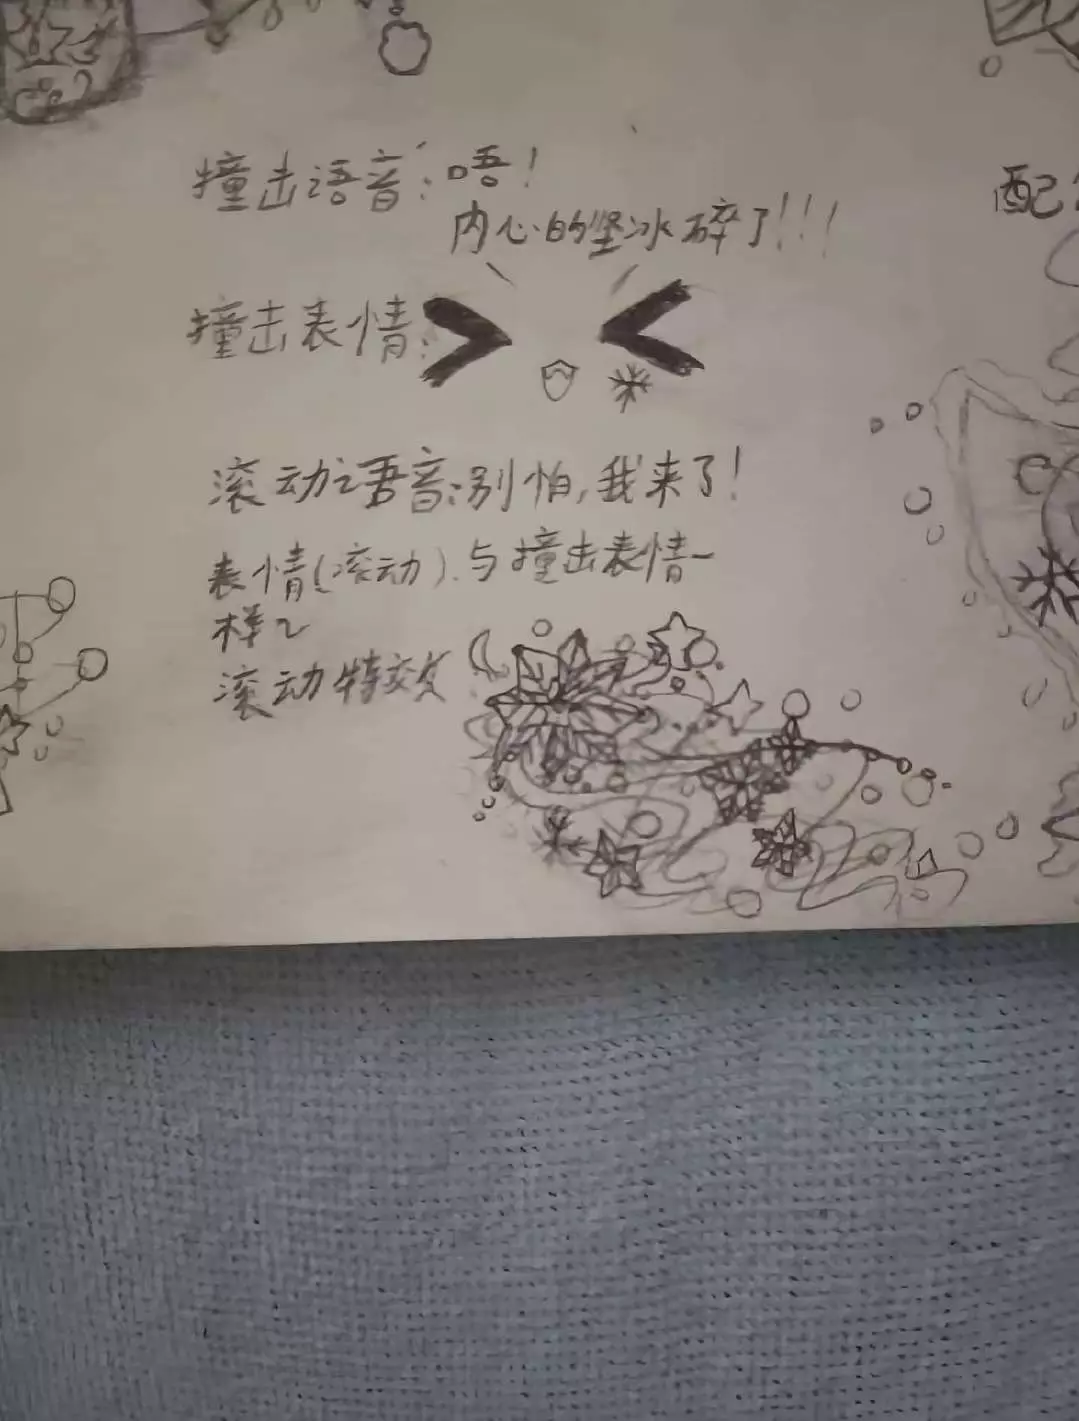 撞击语音：唔！
内心的坚冰碎了!!!
撞击表情：
滚动语音：别怕，我来了！
表情(滚动)：与撞击表情一
样~
滚动特效：
配